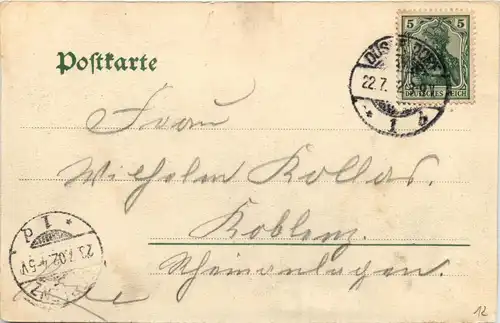 5 5
DEUTSCHES REICH
Postkarte
DÜSSELDORF
22.7.
* 1 b
Frau
Wilhelm Kollas.
Koblenz.
Rheinanlagen.
P 1 *
23.7.02. 4-5V
12